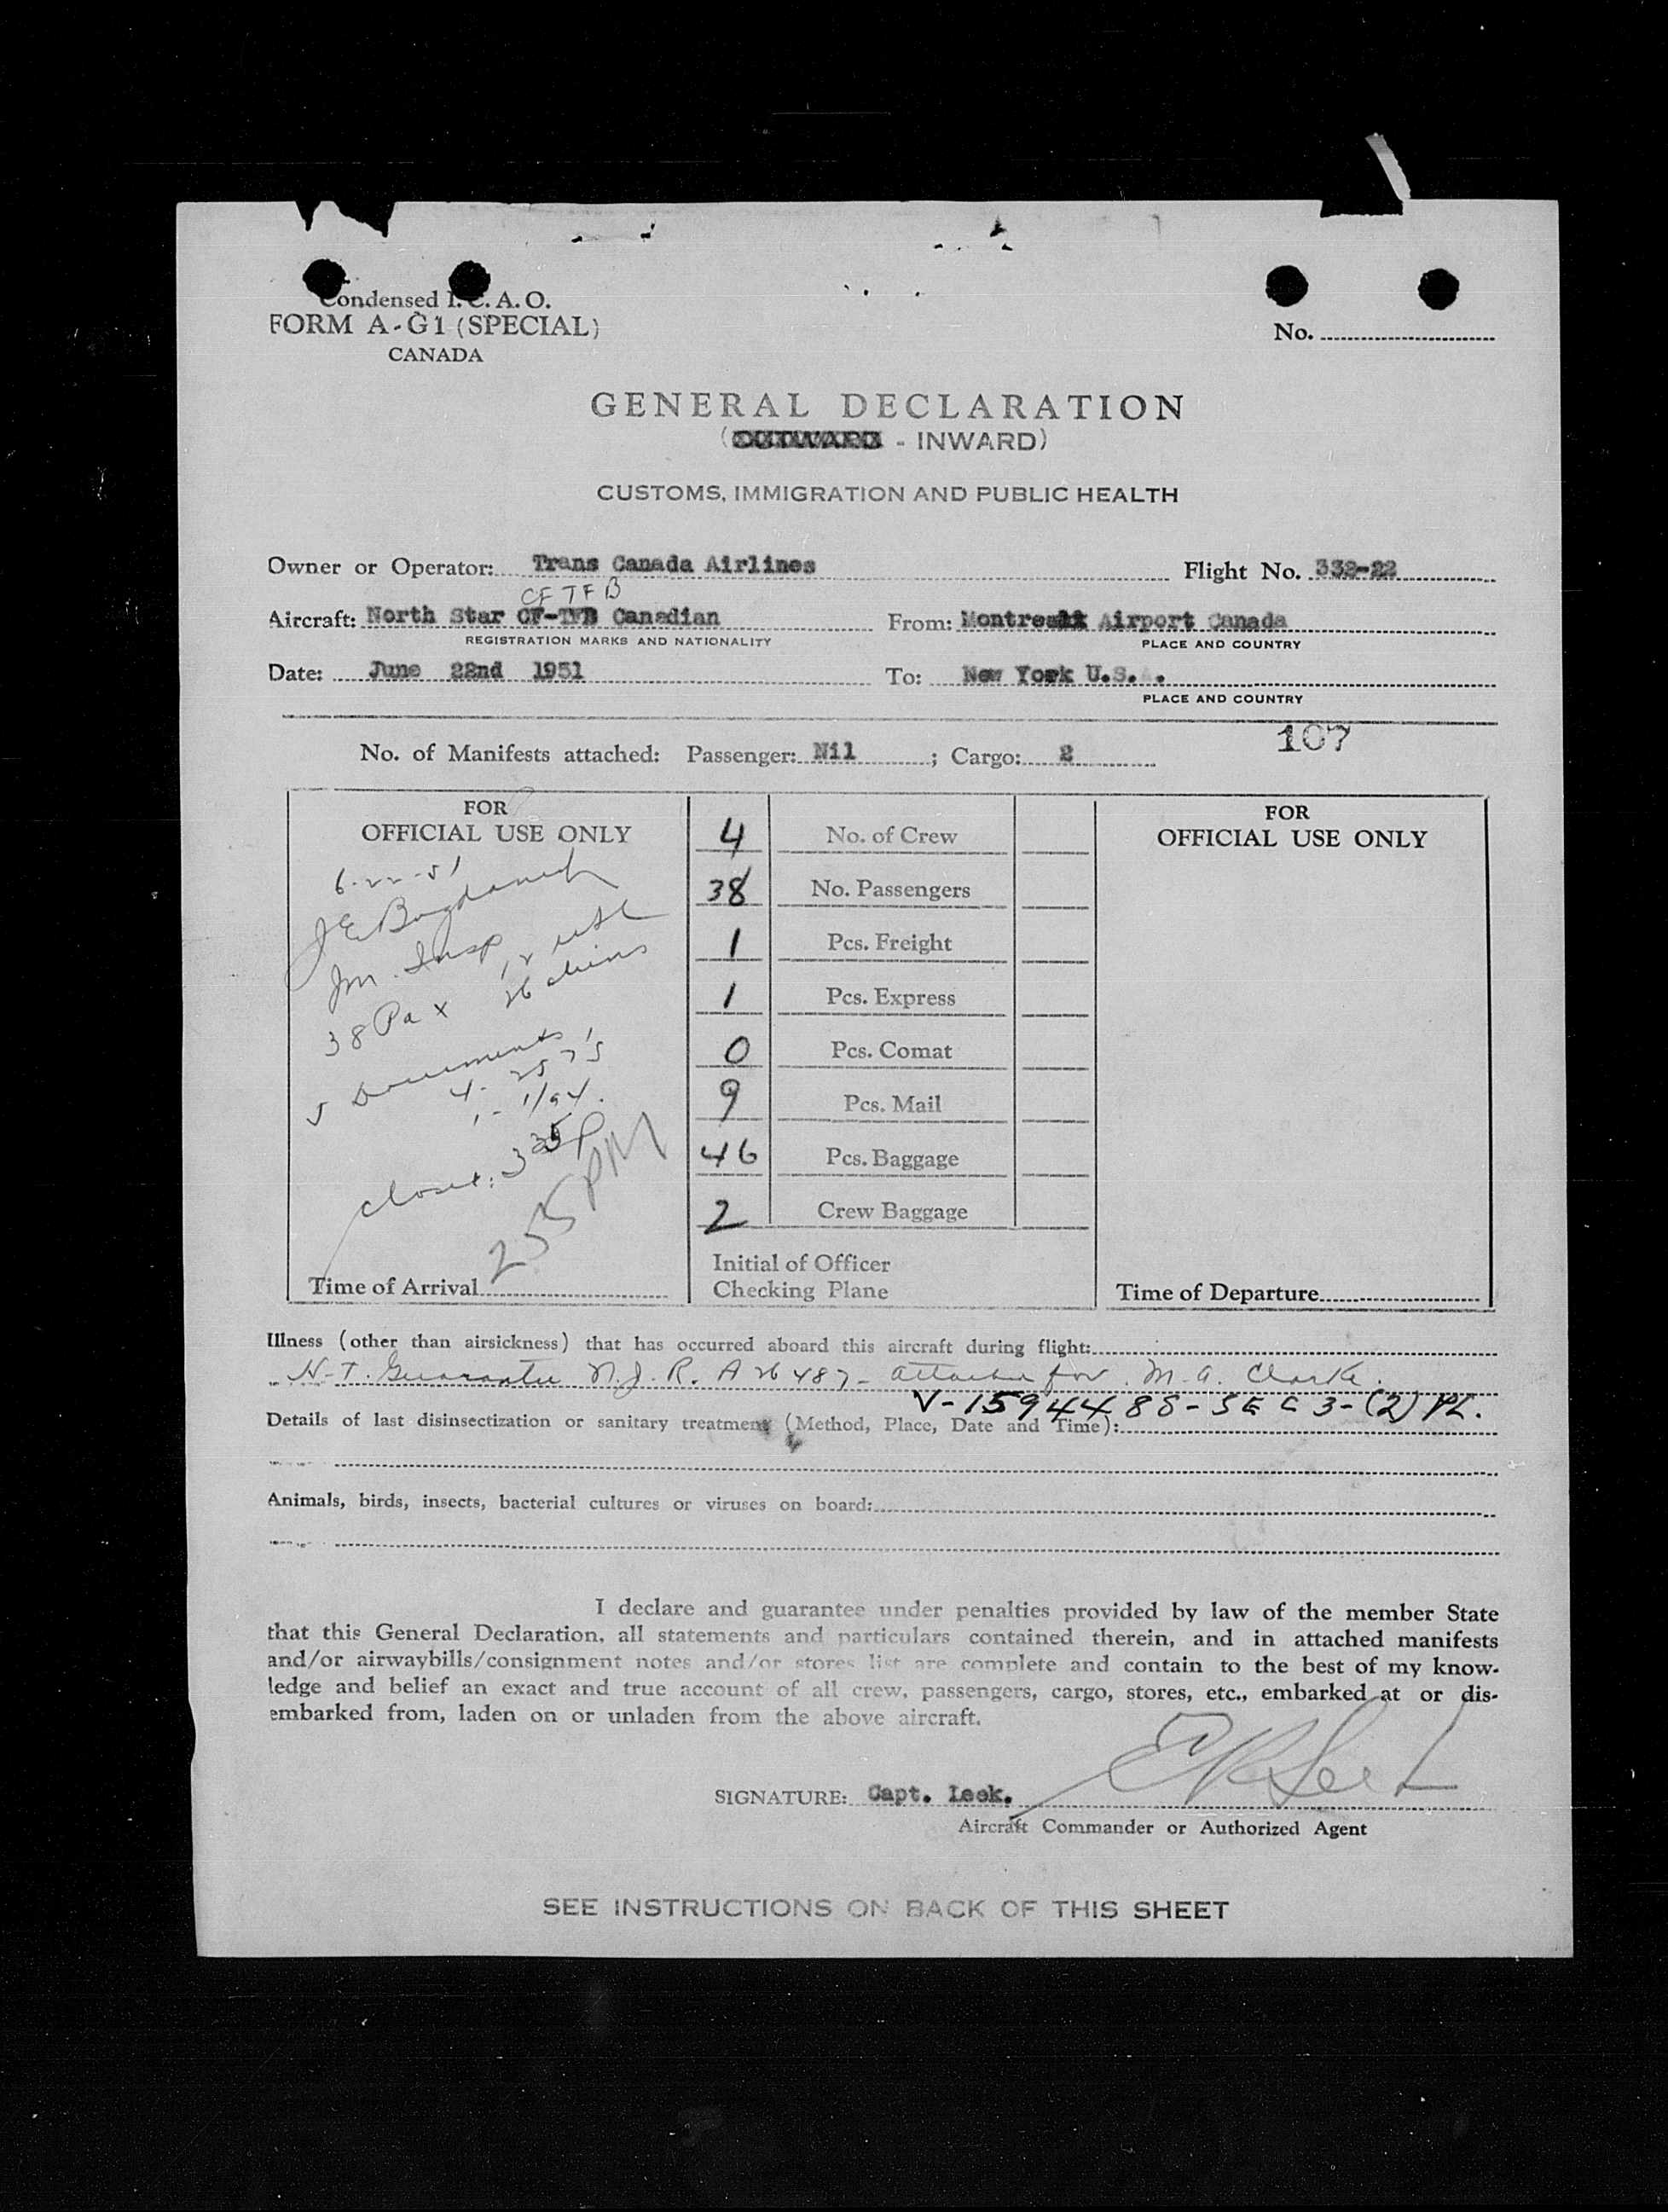 Condensed I. C. A. O.
FORM A-G1 (SPECIAL)
CANADA
No.
GENERAL DECLARATION
(OUTWARD - INWARD)
CUSTOMS, IMMIGRATION AND PUBLIC HEALTH
Owner or Operator: Trans Canada Airlines Flight No. 332-22
CF TFB
Aircraft: North Star CF-TFB Canadian From: Montreal Airport Canada
REGISTRATION MARKS AND NATIONALITY PLACE AND COUNTRY
Date: June 22nd 1951 To: New York U.S.A.
PLACE AND COUNTRY
107
No. of Manifests attached: Passenger: Nil ; Cargo: 2
FOR
OFFICIAL USE ONLY
6-22-51
Im. Insp
12 USC
38 Pax 26 aliens
5 Documents
4- 257's
1- 1/94.
Closed: 335P
255 PM
Time of Arrival
4 No. of Crew
38 No. Passengers
1 Pcs. Freight
1 Pcs. Express
0 Pcs. Comat
9 Pcs. Mail
46 Pcs. Baggage
2 Crew Baggage
Initial of Officer
Checking Plane
FOR
OFFICIAL USE ONLY
Time of Departure
Illness (other than airsickness) that has occurred aboard this aircraft during flight:
N-T. Guarantee N.J.R. A26487- attached for M. A. Clarke.
V-1594488-SEC 3-(2) PL.
Details of last disinsectization or sanitary treatment (Method, Place, Date and Time):
Animals, birds, insects, bacterial cultures or viruses on board:
I declare and guarantee under penalties provided by law of the member State
that this General Declaration, all statements and particulars contained therein, and in attached manifests
and/or airwaybills/consignment notes and/or stores list are complete and contain to the best of my know-
ledge and belief an exact and true account of all crew, passengers, cargo, stores, etc., embarked at or dis-
embarked from, laden on or unladen from the above aircraft.
SIGNATURE: Capt. Leek.
Aircraft Commander or Authorized Agent
SEE INSTRUCTIONS ON BACK OF THIS SHEET